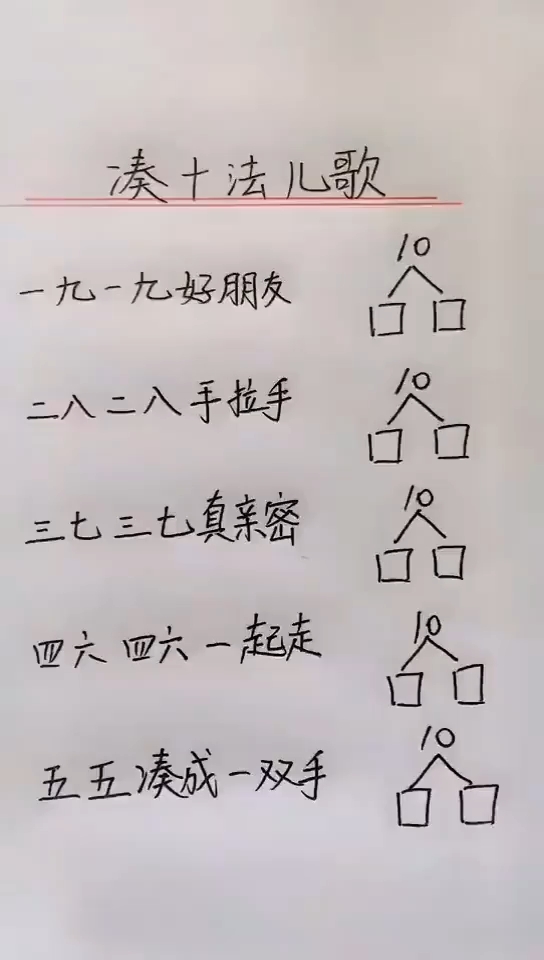 凑十法儿歌
一九一九好朋友 10
二八二八手拉手 10
三七三七真亲密 10
四六四六一起走 10
五五凑成一双手 10